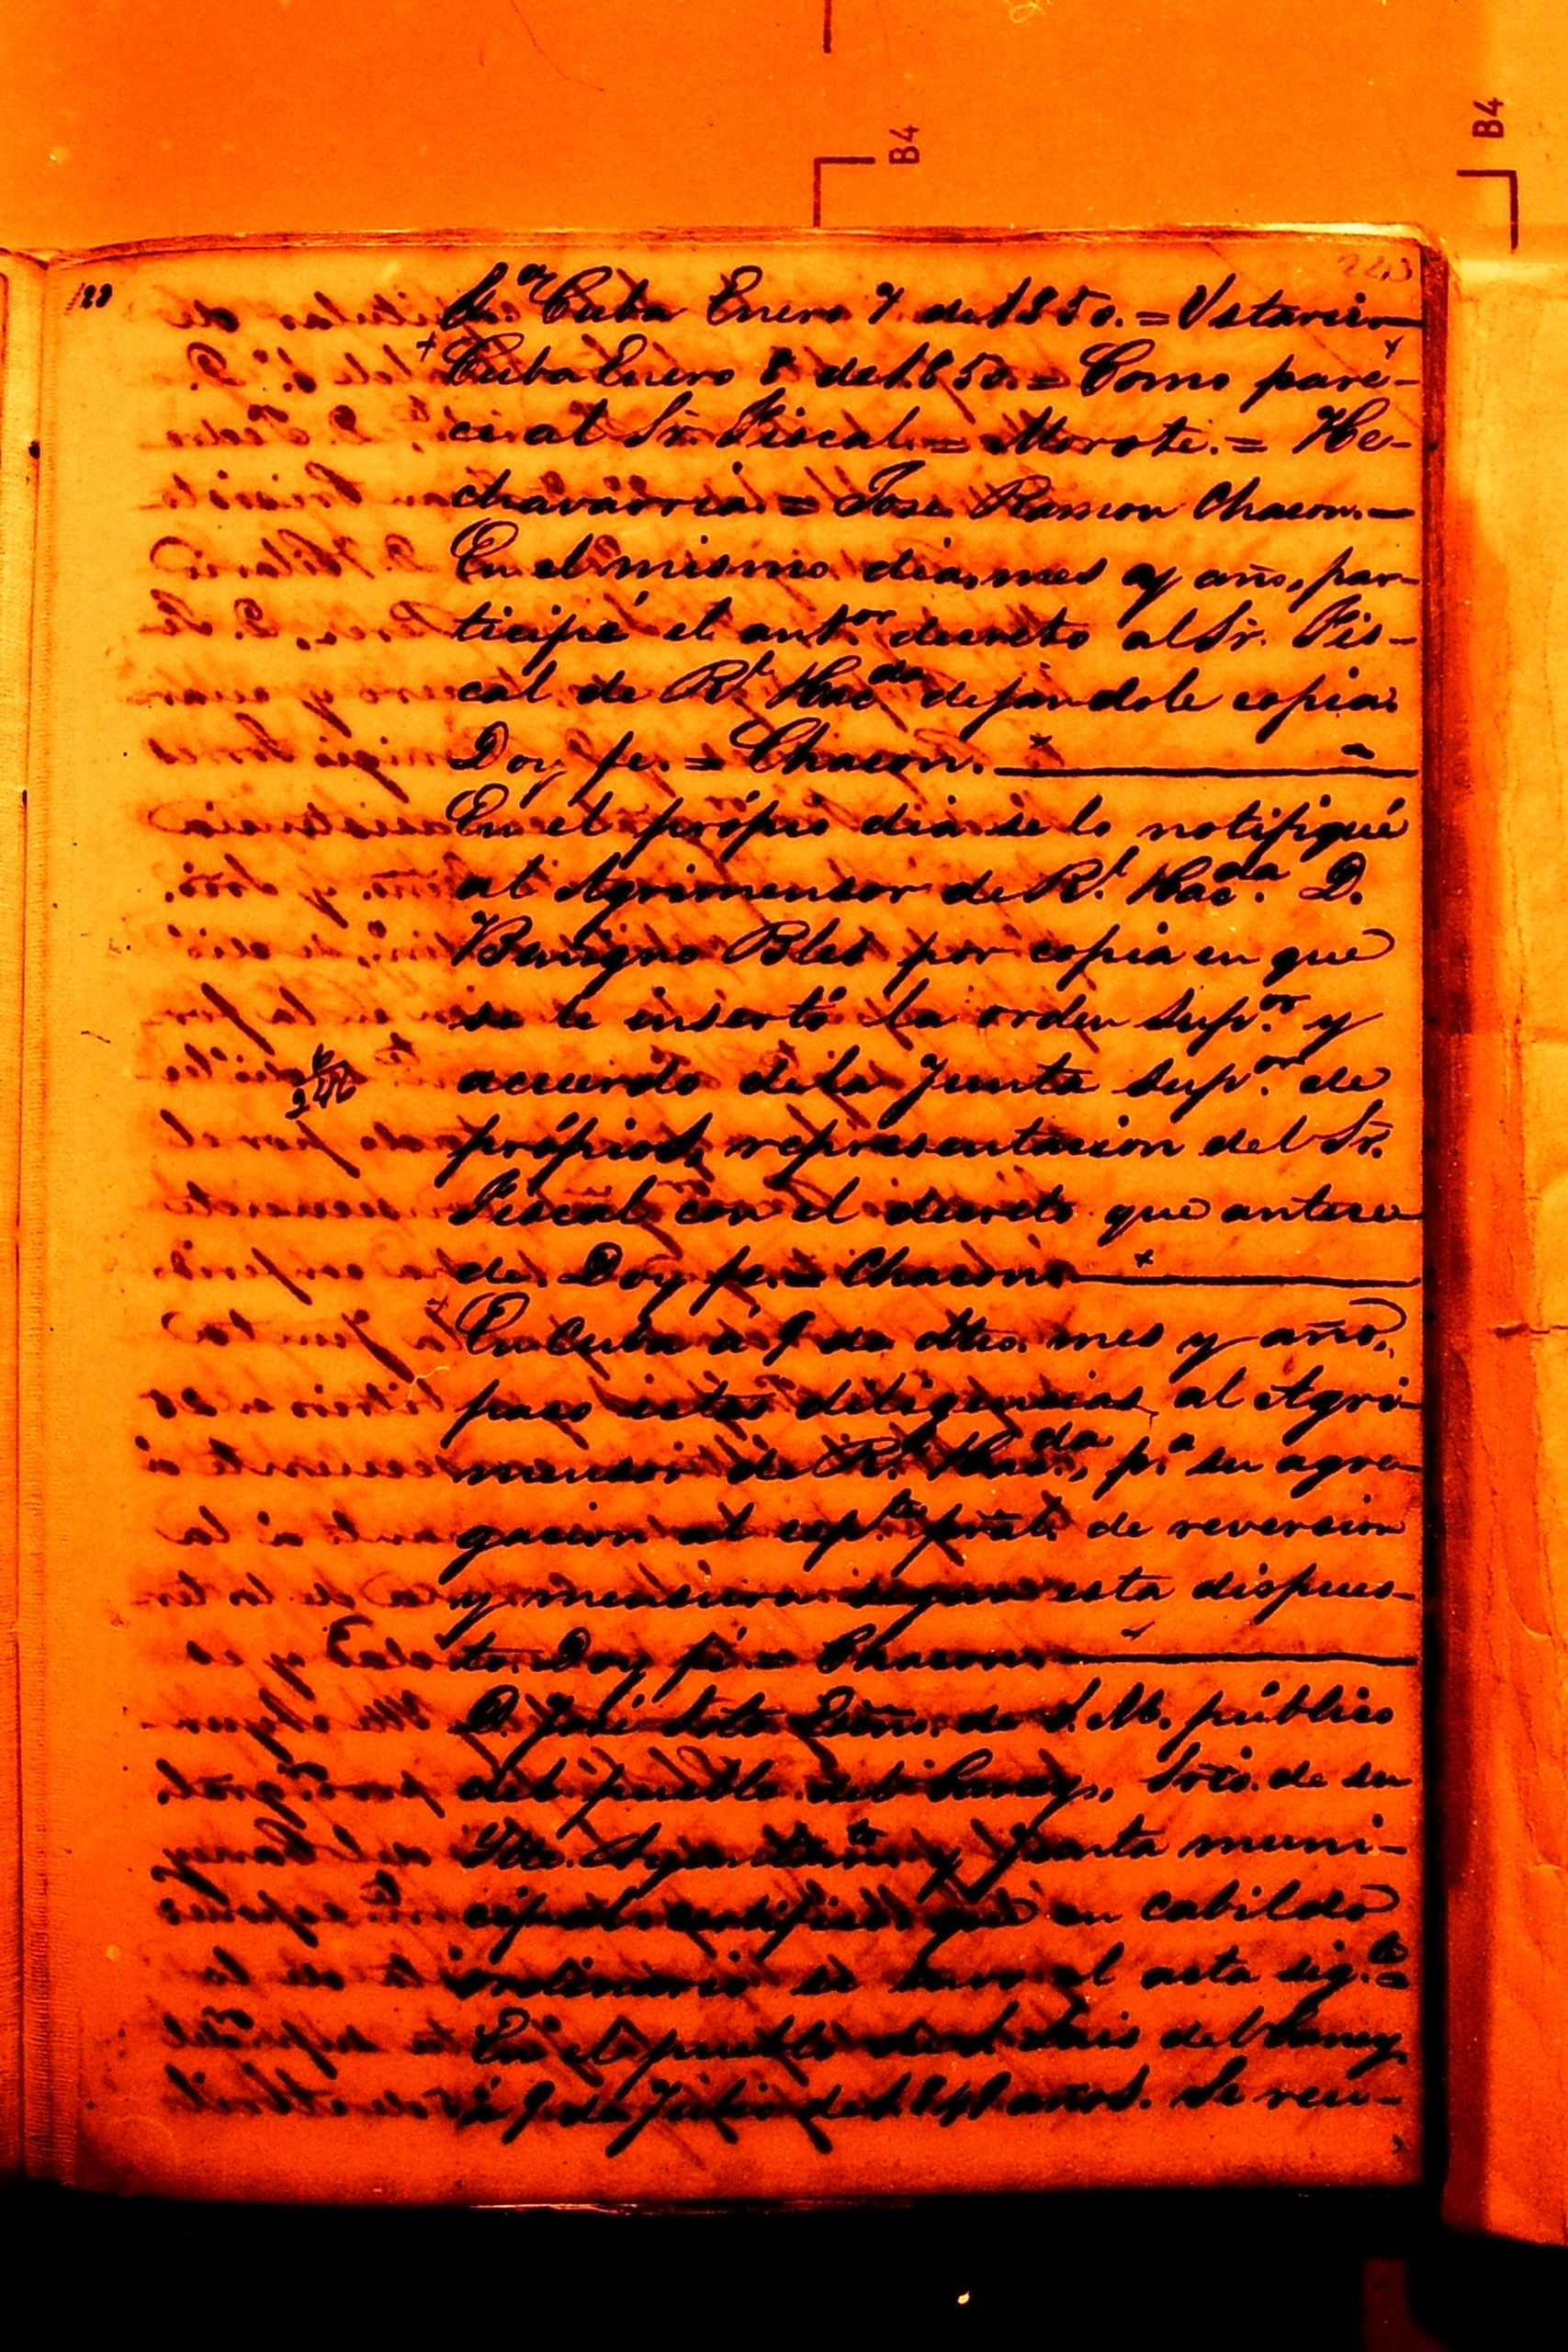 B4
B4
122
Sor Cuba Enero 7 de 1850. = Ustariz
Cuba Enero 8 de 1850. = Como pare-
ce al Sr. Fiscal. = Morote. = He-
chavarria. = José Ramon Chacon. —
En el mismo dia, mes y año, par-
ticipé el antor decreto al Sr. Fis-
cal de Rl. Hacda dejandole copia.
Doy fe. = Chacon.
En el própio dia se lo notifiqué
al Agrimensor de Rl. Hacda. D.
Benigno Bles por copia en que
se le insertó la orden supor. y
acuerdo dela Junta supor. de
própios, representacion del Sr.
Fiscal con el decreto que antece-
de. Doy fe. = Chacon.
En Cuba á 9 de dho. mes y año,
paso estas diligencias al Agri-
mensor de Rl. Hacda., pa. su agre-
gacion al espte. pñal. de reversion
y mensura segun esta dispues-
to. Doy fé. = Chacon
D. José Soto Esño. de S. M. público
del pueblo del Caney, Srio. de su
Ilte. Ayuntamto y Junta muni-
cipal certifico que en cabildo
ordinario se tuvo el acta sigte. =
En el pueblo de S. Luis del Caney
á 9 de Julio de 1849 años. Se reu-